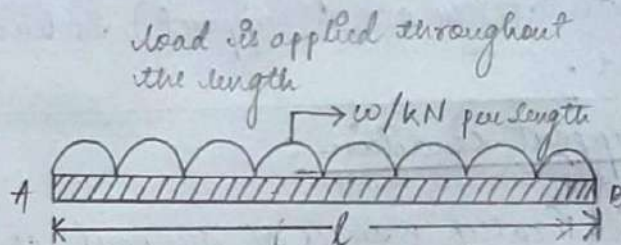 load is applied throughout
the length
w/kN per length
A B
l